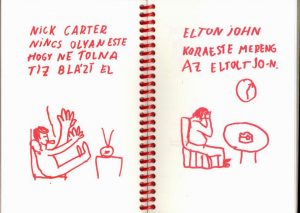 NICK CARTER
NINCS OLYAN ESTE
HOGY NE TOLNA
TIZ BLÁZÍ EL
ELTON JOHN
KORAESTE MERENG
AZ ELTOLT JO-N.